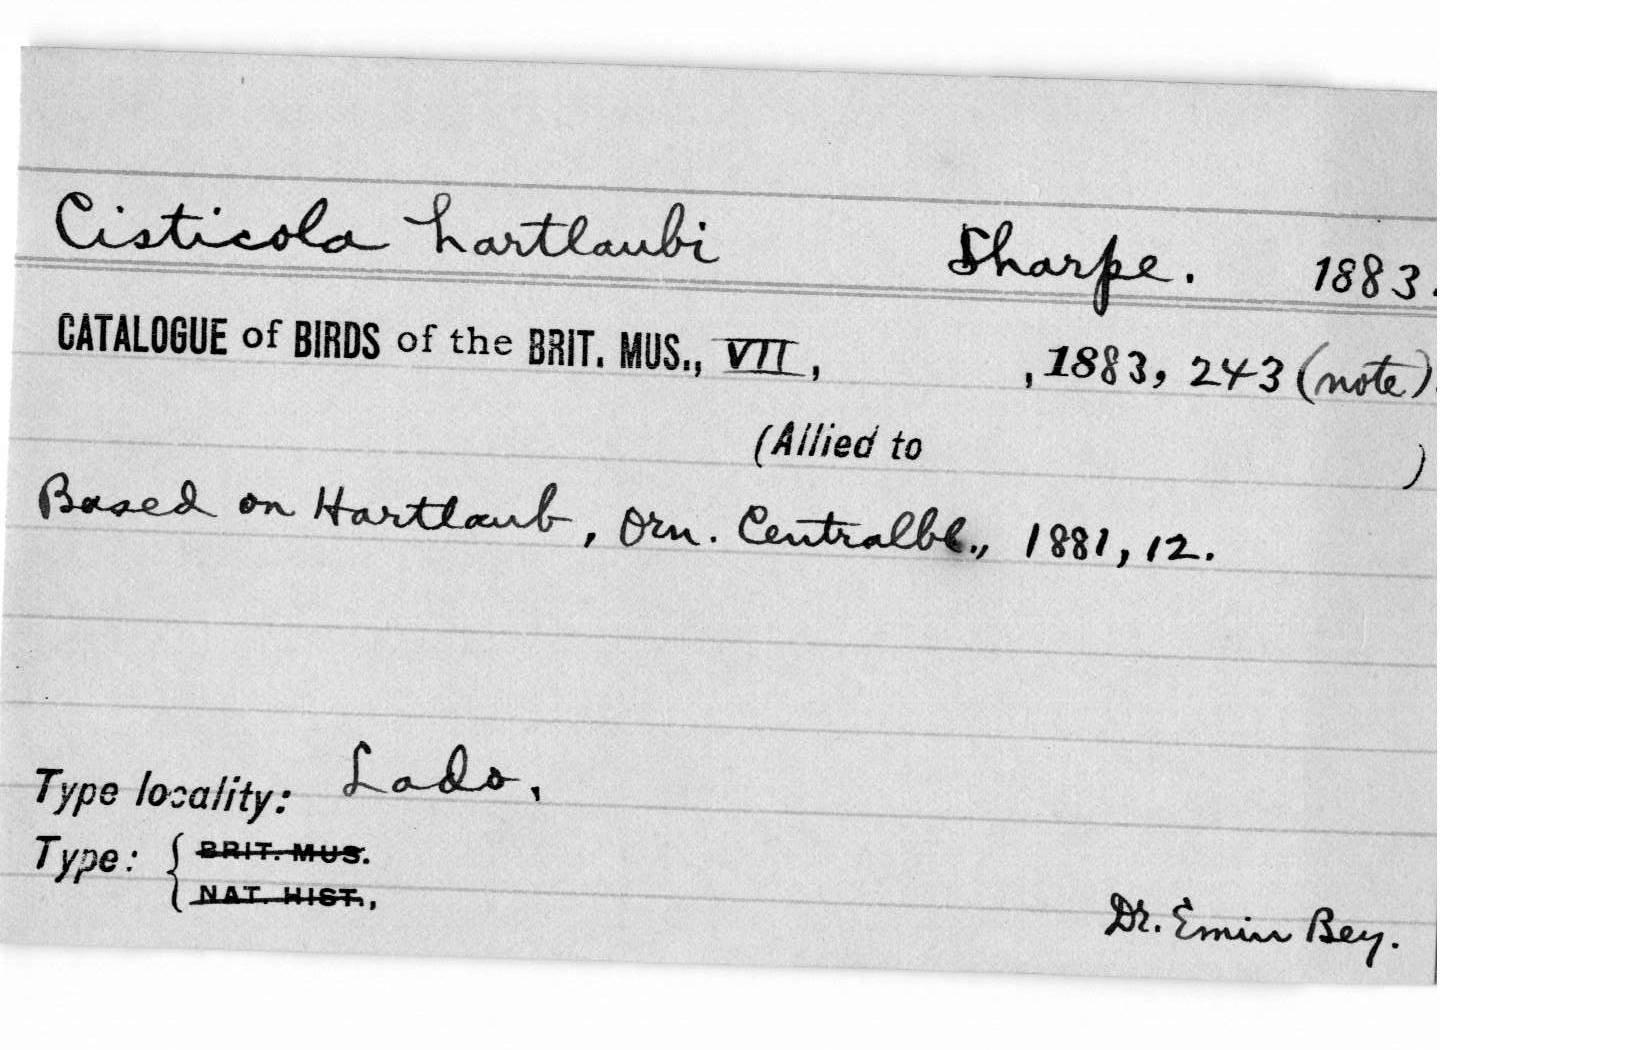 Cisticola hartlaubi Sharpe. 1883.
CATALOGUE of BIRDS of the BRIT. MUS., VII, , 1883, 243 (note).
(Allied to )
Based on Hartlaub, Orn. Centralbl., 1881, 12.
Type locality: Lado,
Type: { BRIT. MUS.
NAT. HIST.,
Dr. Emin Bey.